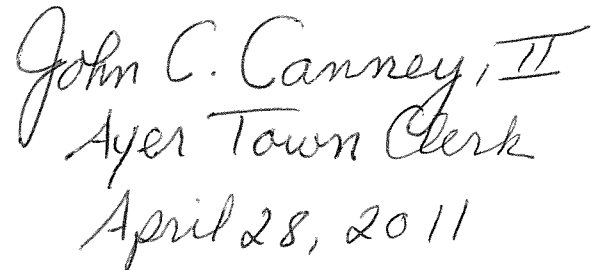 John C. Canney, II
Ayer Town Clerk
April 28, 2011